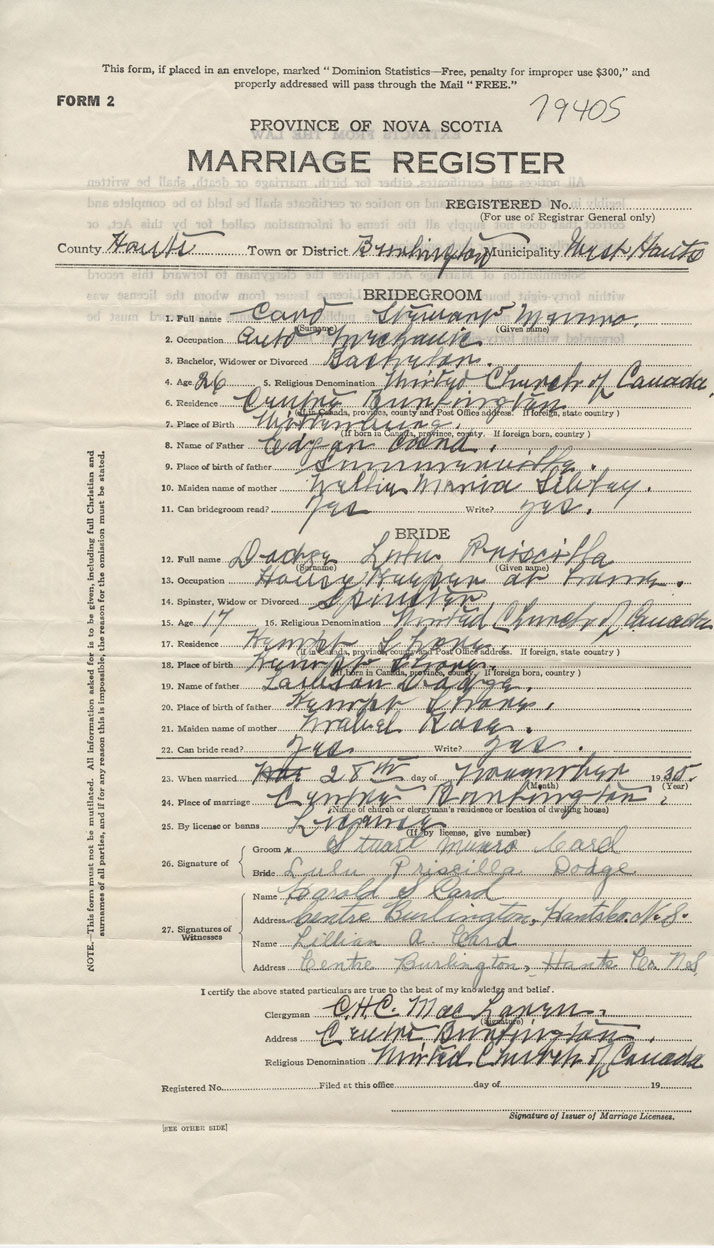 This form, if placed in an envelope, marked "Dominion Statistics—Free, penalty for improper use $300," and
properly addressed will pass through the Mail "FREE."
FORM 2
79405
PROVINCE OF NOVA SCOTIA
MARRIAGE REGISTER
REGISTERED No.
(For use of Registrar General only)
County Hants Town or District Burlington Municipality West Hants
BRIDEGROOM
1. Full name Card Stewart Munro.
(Surname) (Given name)
2. Occupation Auto Mechanic
3. Bachelor, Widower or Divorced Bachelor.
4. Age 26 5. Religious Denomination United Church of Canada.
6. Residence Centre Burlington
(If in Canada, province, county and Post Office address. If foreign, state country)
7. Place of Birth
(If born in Canada, province, county. If foreign born, country)
8. Name of Father Edgar Card.
9. Place of birth of father Summerville.
10. Maiden name of mother Nellie Maria
11. Can bridegroom read? Yes Write? Yes.
BRIDE
12. Full name Dodge Lulu Priscilla
(Surname) (Given name)
13. Occupation House Keeper at home.
14. Spinster, Widow or Divorced Spinster
15. Age 17 16. Religious Denomination United Church of Canada
17. Residence Kempt Shore
(if in Canada, province, county and Post Office address. If foreign, state country)
18. Place of birth Kempt Shore.
(If born in Canada, province, county. If foreign born, country)
19. Name of father Dodge.
20. Place of birth of father Kempt Shore.
21. Maiden name of mother Mabel
22. Can bride read? Yes Write? Yes.
23. When married 28th day of November 1935.
(Month) (Year)
24. Place of marriage Centre Burlington.
(Name of church or clergyman's residence or location of dwelling house)
25. By license or banns License
(If by license, give number)
26. Signature of Groom x Stuart Munro Card
Bride Lulu Priscilla Dodge
27. Signatures of Witnesses Name Harold S Card
Address Centre Burlington, Hants Co. N.S.
Name Lillian A. Card
Address Centre Burlington, Hants Co. N.S.
I certify the above stated particulars are true to the best of my knowledge and belief.
Clergyman C.H.C. MacLaren.
(Signature)
Address Centre Burlington.
Religious Denomination United Church of Canada
Registered No. Filed at this office day of 19
Signature of Issuer of Marriage Licenses.
[SEE OTHER SIDE]
NOTE.—This form must not be mutilated. All information asked for is to be given, including full Christian and
surnames of all parties, and if for any reason this is impossible, the reason for the omission must be stated.